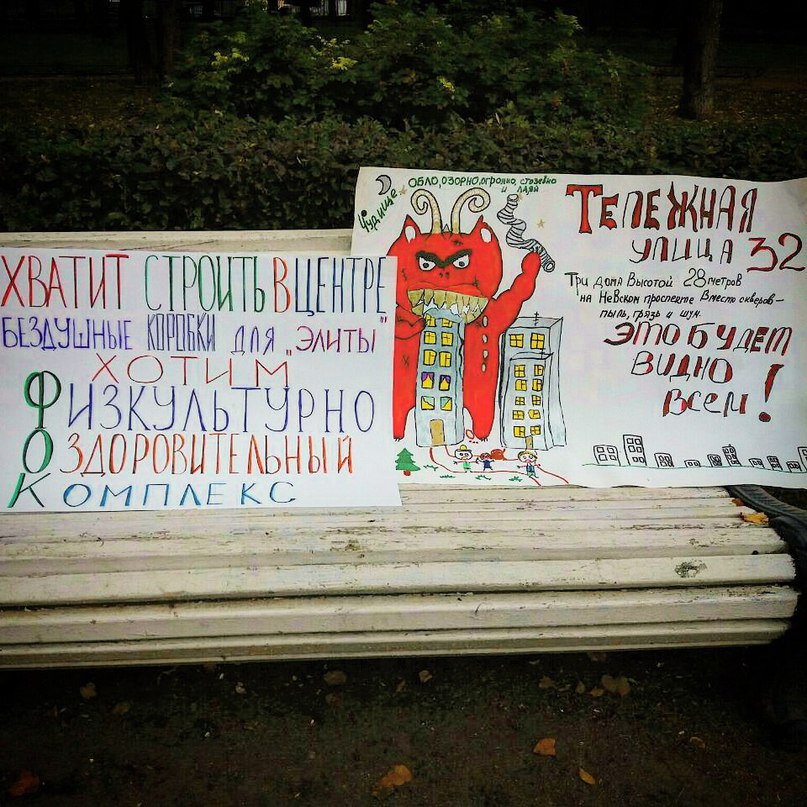 ХВАТИТ СТРОИТЬ В ЦЕНТРЕ
БЕЗДУШНЫЕ КОРОБКИ ДЛЯ "ЭЛИТЫ"
ХОТИМ
ФИЗКУЛЬТУРНО
ОЗДОРОВИТЕЛЬНЫЙ
КОМПЛЕКС
Чудище
ОБЛО, ОЗОРНО, огромно, стозевно
и лаяй
ТЕЛЕЖНАЯ
УЛИЦА 32
Три дома Высотой 28 метров
на Невском проспекте Вместо скверов –
пыль, грязь и шум.
ЭТО БУДЕТ
ВИДНО
ВСЕМ!